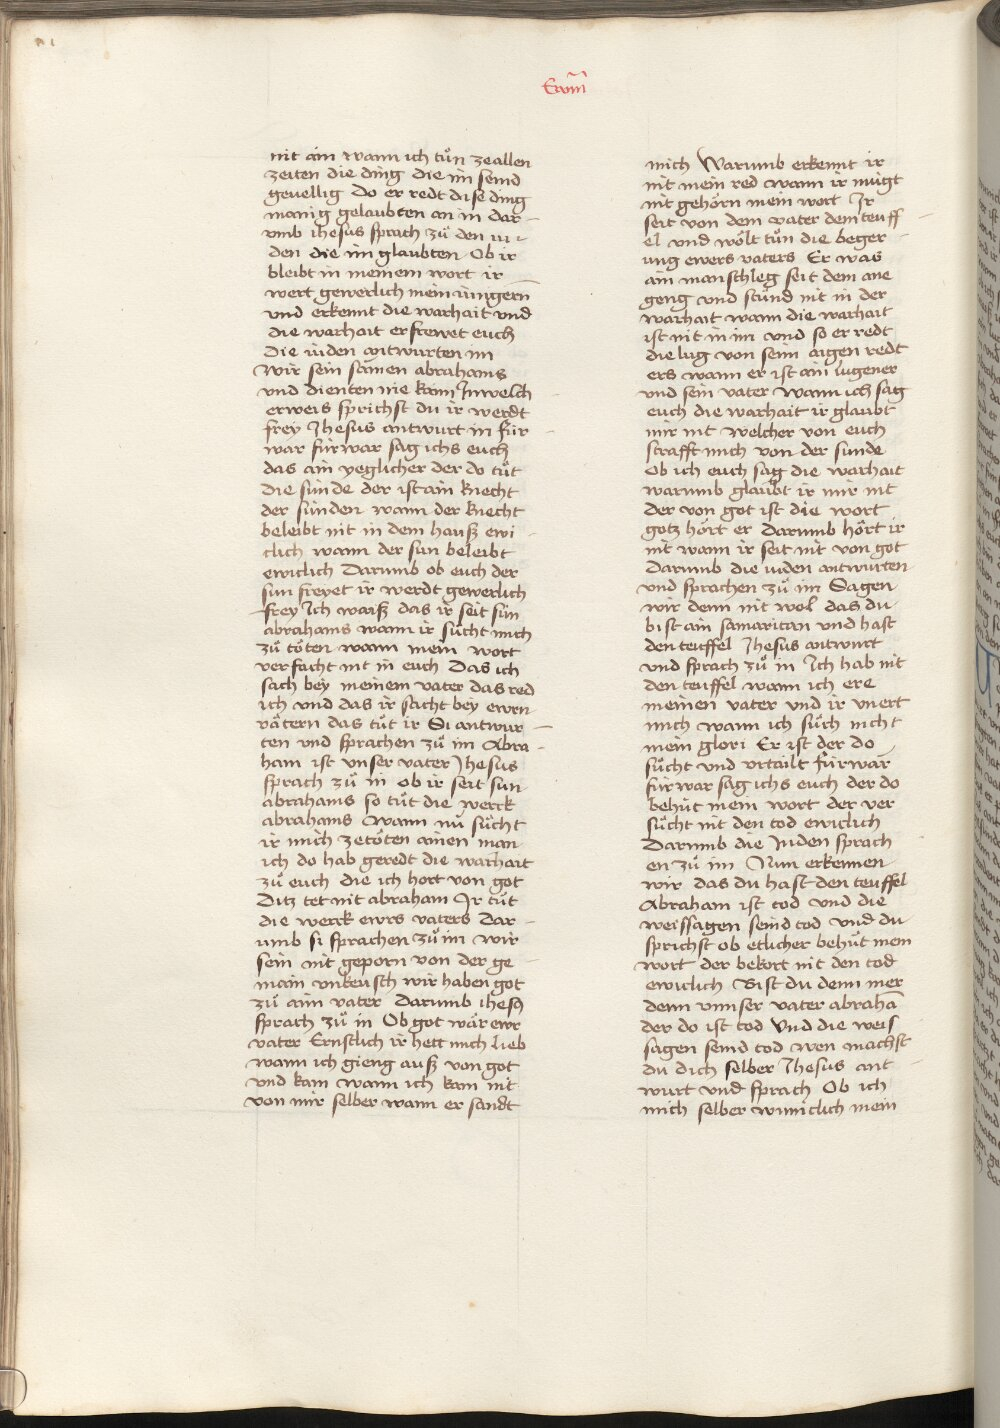 Ewm̃
nit ain wann ich tůn zeallen
zeiten die ding die im seind
geuellig Do er redt dise ding
manig gelaubten an in dar-
umb ihesus sprach zů den iu-
den die im glaubten Ob ir
bleibt in meinem wort ir
wert gewerlich mein iungern
vnd erkennt die warhait vnd
die warhait erfrewet euch
Die iuden antwurten im
Wir sein samen abrahams
vnd dienten nie kaim Inwelch
erweis sprichst du ir werdt
frey Ihesus antwurt in für
war fürwar sag ichs euch
das ain yeglicher der do tůt
die sünde der ist ain knecht
der sünden wann der knecht
beleibt nit in dem hauß ewi-
clich wann der sun beleibt
ewiclich Darumb ob euch der
sun freyet ir werdt gewerlich
frey Ich waiß das ir seit sün
abrahams wann ir sůcht mich
zů töten wann mein wort
verfacht nit in euch Das ich
sach bey meinem vater das red
ich vnd das ir sacht bey ewrn
vätern das tůt ir Si antwur-
ten vnd sprachen zů im Abra-
ham ist vnser vater Ihesus
sprach zů in ob ir seit sun
abrahams so tůt die werck
abrahams Wann nů sůcht
ir mich zetöten ainen man
ich do hab geredt die warhait
zů euch die ich hort von got
Ditz tet nit abraham Ir tůt
die werck ewrs vaters Dar-
umb si sprachen zů im wir
sein nit geporn von der ge-
main vnkeusch wir haben got
zů aim vater Darumb ihesꝰ
sprach zů in Ob got wär ewr
vater Ernstlich ir hett mich lieb
wann ich gieng auß von got
vnd kam wann ich kam nit
von mir selber wann er sandt
mich Warumb erkennt ir
nit mein red wann ir mügt
nit gehörn mein wort Ir
seit von dem vater dem teuff-
el vnd wölt tůn die beger-
ung ewers vaters Er was
ain manschleg seit dem ane
geng vnd stůnd nit in der
warhait wann die warhait
ist nit in im vnd so er redt
die lug von seim aigen redt
ers wann er ist ain lugener
vnd sein vater Wann ich sag
euch die warhait ir glaubt
mir nit Welcher von euch
strafft mich von der sünde
Ob ich euch sag die warhait
warumb glaubt ir mir nit
der von got ist die wort
gotz hört er Darumb hört ir
nit wann ir seit nit von got
Darumb die iuden antwurten
vnd sprachen zů im Sagen
wir denn nit wol das du
bist ain samaritan vnd hast
den teuffel Ihesus antwurt
vnd sprach zů in Ich hab nit
den teuffel wann ich ere
meinen vater vnd ir vnert
mich wann ich sůch nicht
mein glori Er ist der do
sůcht vnd vrtailt fürwar
fürwar sag ichs euch der do
behüt mein wort der ver
sůcht nit den tod ewiclich
Darumb die Juden sprach
en zů im Nun erkennen
wir das du hast den teuffel
Abraham ist tod vnd die
weissagen seind tod vnd du
sprichst ob etlicher behüt mein
wort der bekort nit den tod
ewiclich Bist du denn mer
denn vnnser vater abrahā
der do ist tod Vnd die weis
sagen seind tod wen machst
du dich selber Ihesus ant
wurt vnd sprach Ob ich
mich selber wunniclich mein